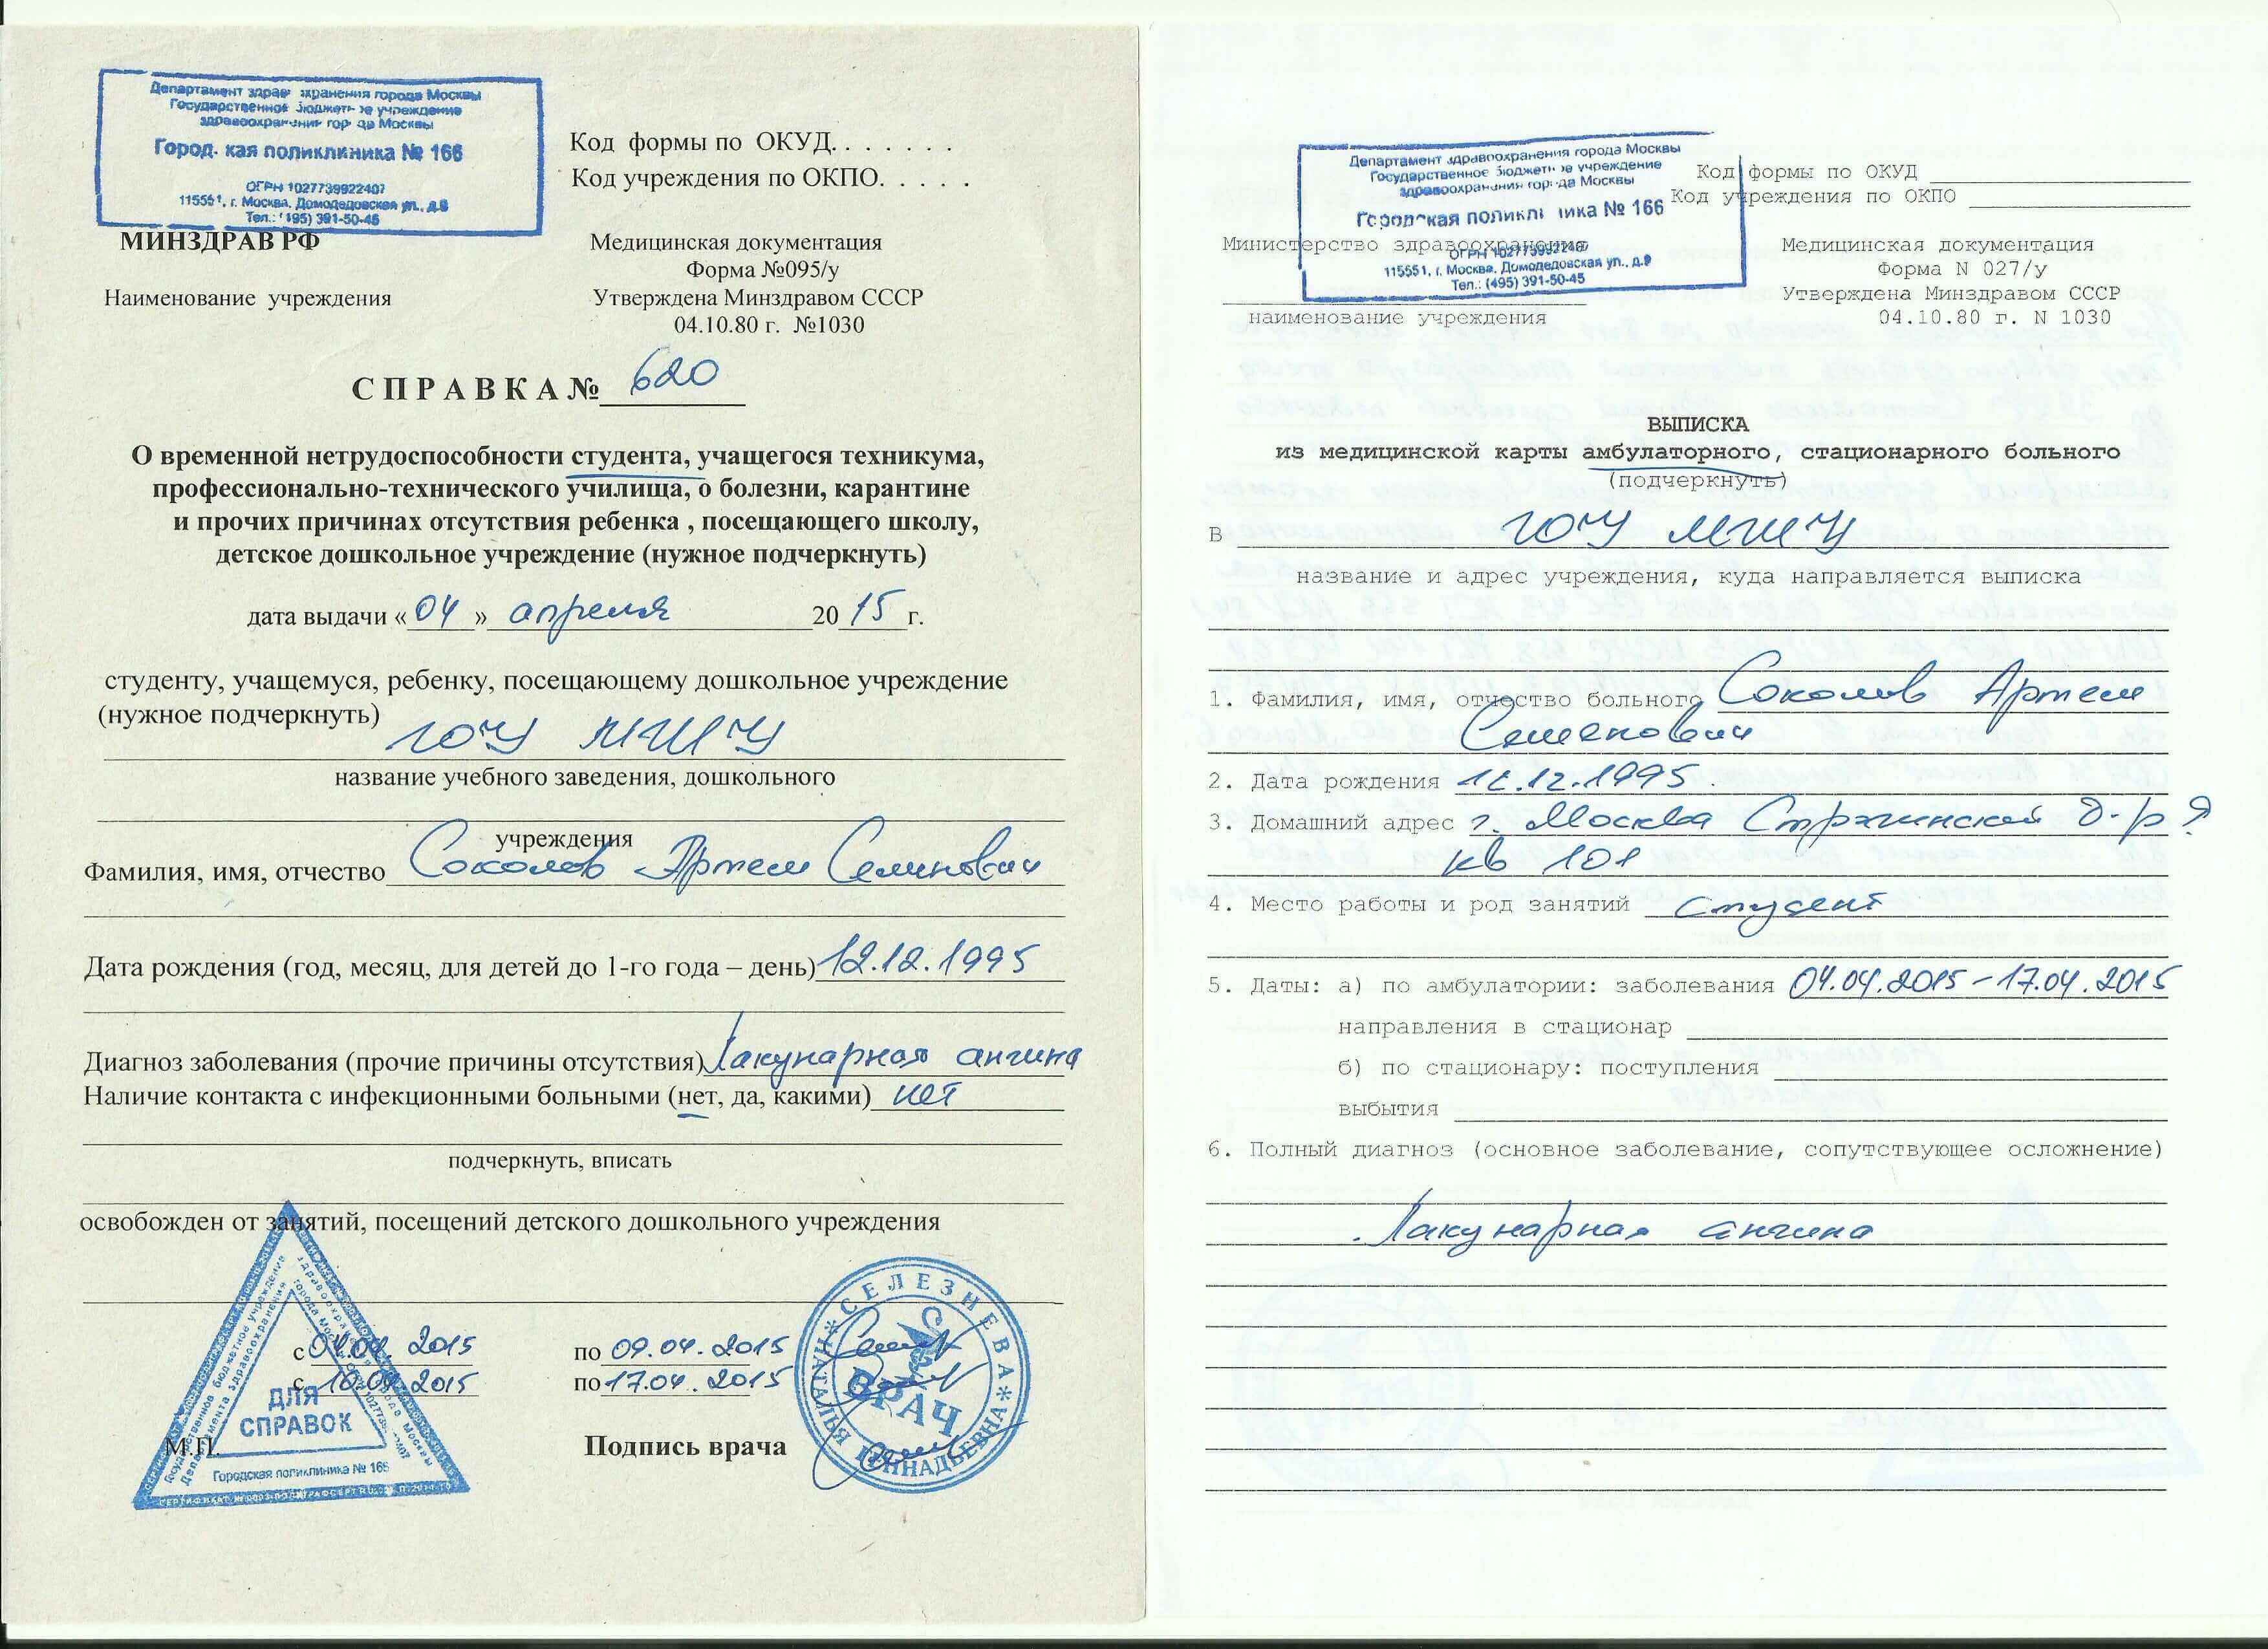 Департамент здравоохранения города Москвы
Государственное бюджетное учреждение
здравоохранения города Москвы
Городская поликлиника № 166
ОГРН 1027739922407
115551, г. Москва, Домодедовская ул., д.9
Тел.: (495) 391-50-45
Код формы по ОКУД. . . . . . .
Код учреждения по ОКПО. . . . .
МИНЗДРАВ РФ
Медицинская документация
Форма №095/у
Наименование учреждения
Утверждена Минздравом СССР
04.10.80 г. №1030
СПРАВКА № 620
О временной нетрудоспособности студента, учащегося техникума,
профессионально-технического училища, о болезни, карантине
и прочих причинах отсутствия ребенка , посещающего школу,
детское дошкольное учреждение (нужное подчеркнуть)
дата выдачи «04» апреля 2015 г.
студенту, учащемуся, ребенку, посещающему дошкольное учреждение
(нужное подчеркнуть)
ГОУ МГИУ
название учебного заведения, дошкольного
учреждения
Фамилия, имя, отчество Соколов Артем Семенович
Дата рождения (год, месяц, для детей до 1-го года – день) 12.12.1995
Диагноз заболевания (прочие причины отсутствия) Лакунарная ангина
Наличие контакта с инфекционными больными (нет, да, какими) нет
подчеркнуть, вписать
освобожден от занятий, посещений детского дошкольного учреждения
с 04.04.2015 по 09.04.2015
с 10.04.2015 по 17.04.2015
М.П. Подпись врача
ДЛЯ
СПРАВОК
Городская поликлиника № 166
СЕЛЕЗНЕВА
НАТАЛЬЯ ГЕННАДЬЕВНА
ВРАЧ
Департамент здравоохранения города Москвы
Государственное бюджетное учреждение
здравоохранения города Москвы
Городская поликлиника № 166
ОГРН 1027739922407
115551, г. Москва, Домодедовская ул., д.9
Тел.: (495) 391-50-45
Код формы по ОКУД
Код учреждения по ОКПО
Министерство здравоохранения
Медицинская документация
Форма N 027/у
Утверждена Минздравом СССР
наименование учреждения
04.10.80 г. N 1030
ВЫПИСКА
из медицинской карты амбулаторного, стационарного больного
(подчеркнуть)
В ГОУ МГИУ
название и адрес учреждения, куда направляется выписка
1. Фамилия, имя, отчество больного Соколов Артем
Семенович
2. Дата рождения 12.12.1995
3. Домашний адрес г. Москва
кв 101
4. Место работы и род занятий студент
5. Даты: а) по амбулатории: заболевания 04.04.2015-17.04.2015
направления в стационар
б) по стационару: поступления
выбытия
6. Полный диагноз (основное заболевание, сопутствующее осложнение)
Лакунарная ангина